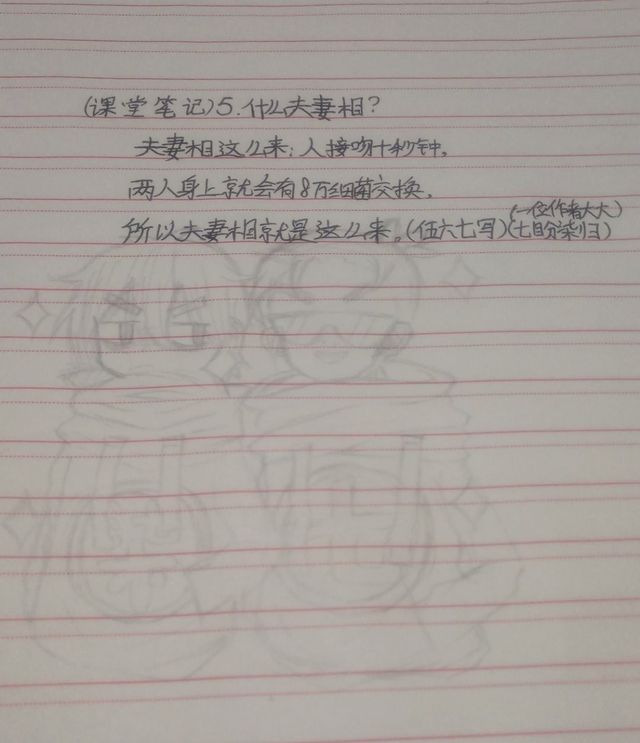 (课堂笔记)5.什么夫妻相?
夫妻相这么来:人接吻十秒钟,
两人身上就会有8万细菌交换,
(一位作者大大)
所以夫妻相就是这么来。(伍六七写)(七日分染归)